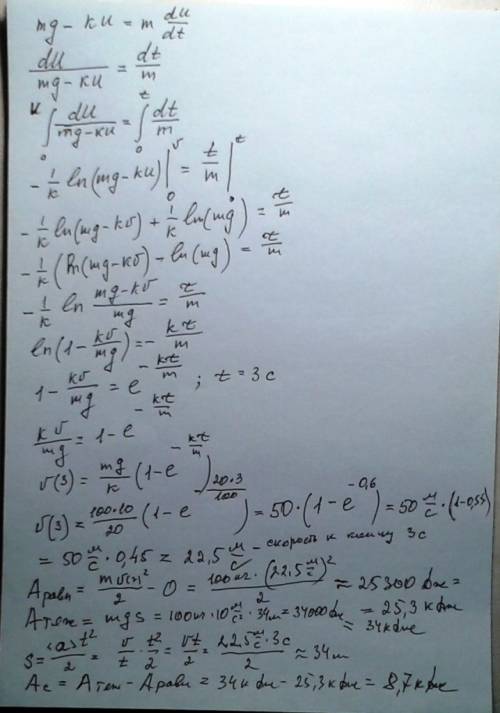 mg - ku = m du/dt
du/(mg-ku) = dt/m
u∫₀ du/(mg-ku) = ∫₀ᵗ dt/m
- 1/k ln(mg-ku) |₀ᵛ = t/m |₀ᵗ
- 1/k ln(mg-kv) + 1/k ln(mg) = t/m
- 1/k (ln(mg-kv) - ln(mg)) = t/m
- 1/k ln (mg-kv)/mg = t/m
ln(1 - kv/mg) = - kt/m
1 - kv/mg = e^(-kt/m) ; t = 3 с
kv/mg = 1 - e^(-kt/m)
v(3) = mg/k (1-e^(-kt/m))
v(3) = 100·10/20 (1-e^(-20·3/100)) = 50·(1-e^(-0,6)) = 50 м/с·(1-0,55)
= 50 м/с · 0,45 = 22,5 м/с - скорость к концу 3с
Aравн = mv(3)²/2 - 0 = 100кг·(22,5 м/с)²/2 ≈ 25300 Дж =
Aтяж = mgs = 100кг·10 м/с²·34м = 34000 Дж = 25,3 кДж
= 34 кДж
S = <a>t²/2 = v/t · t²/2 = vt/2 = 22,5 м/с·3с/2 ≈ 34м
Aс = Aтяж - Aравн = 34 кДж - 25,3 кДж = 8,7 кДж